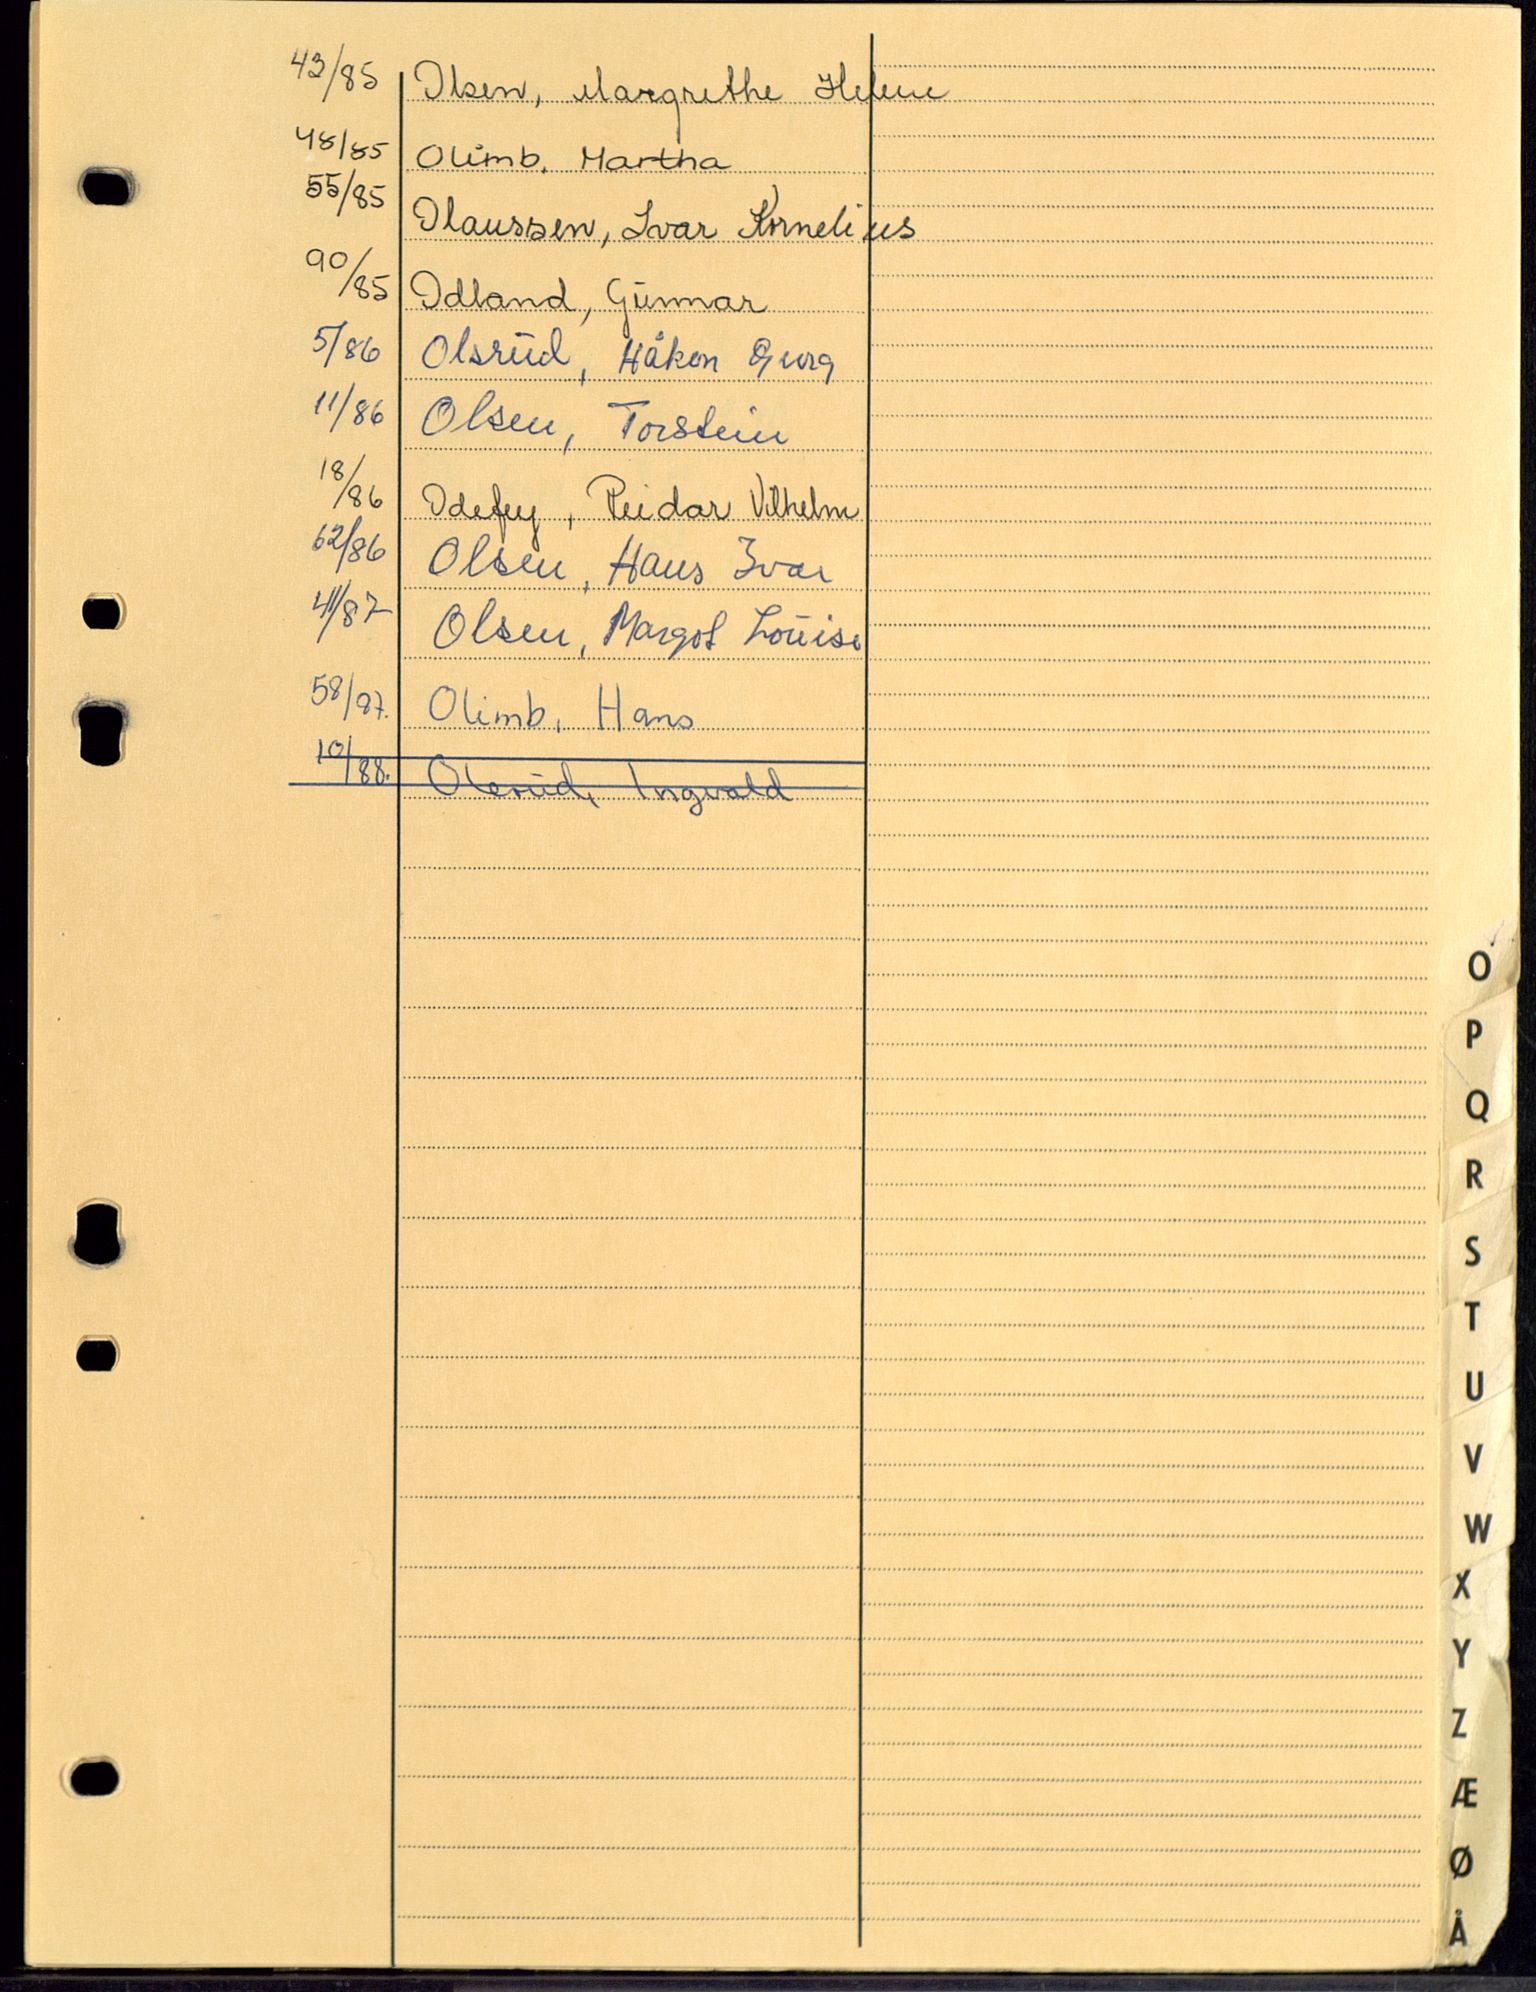 43/85 Olsen, Margrethe Helene
48/85 Olimb, Martha
55/85 Olaussen, Ivar Kornelius
90/85 Odland, Gunnar
5/86 Olsrud, Håkon Georg
11/86 Olsen, Torstein
18/86 Odefey, Reidar Vilhelm
62/86 Olsen, Hans Ivar
41/87 Olsen, Margot Louise
58/87. Olimb, Hans
10/88. Olerud, Ingvald
O
P
Q
R
S
T
U
V
W
X
Y
Z
Æ
Ø
Å